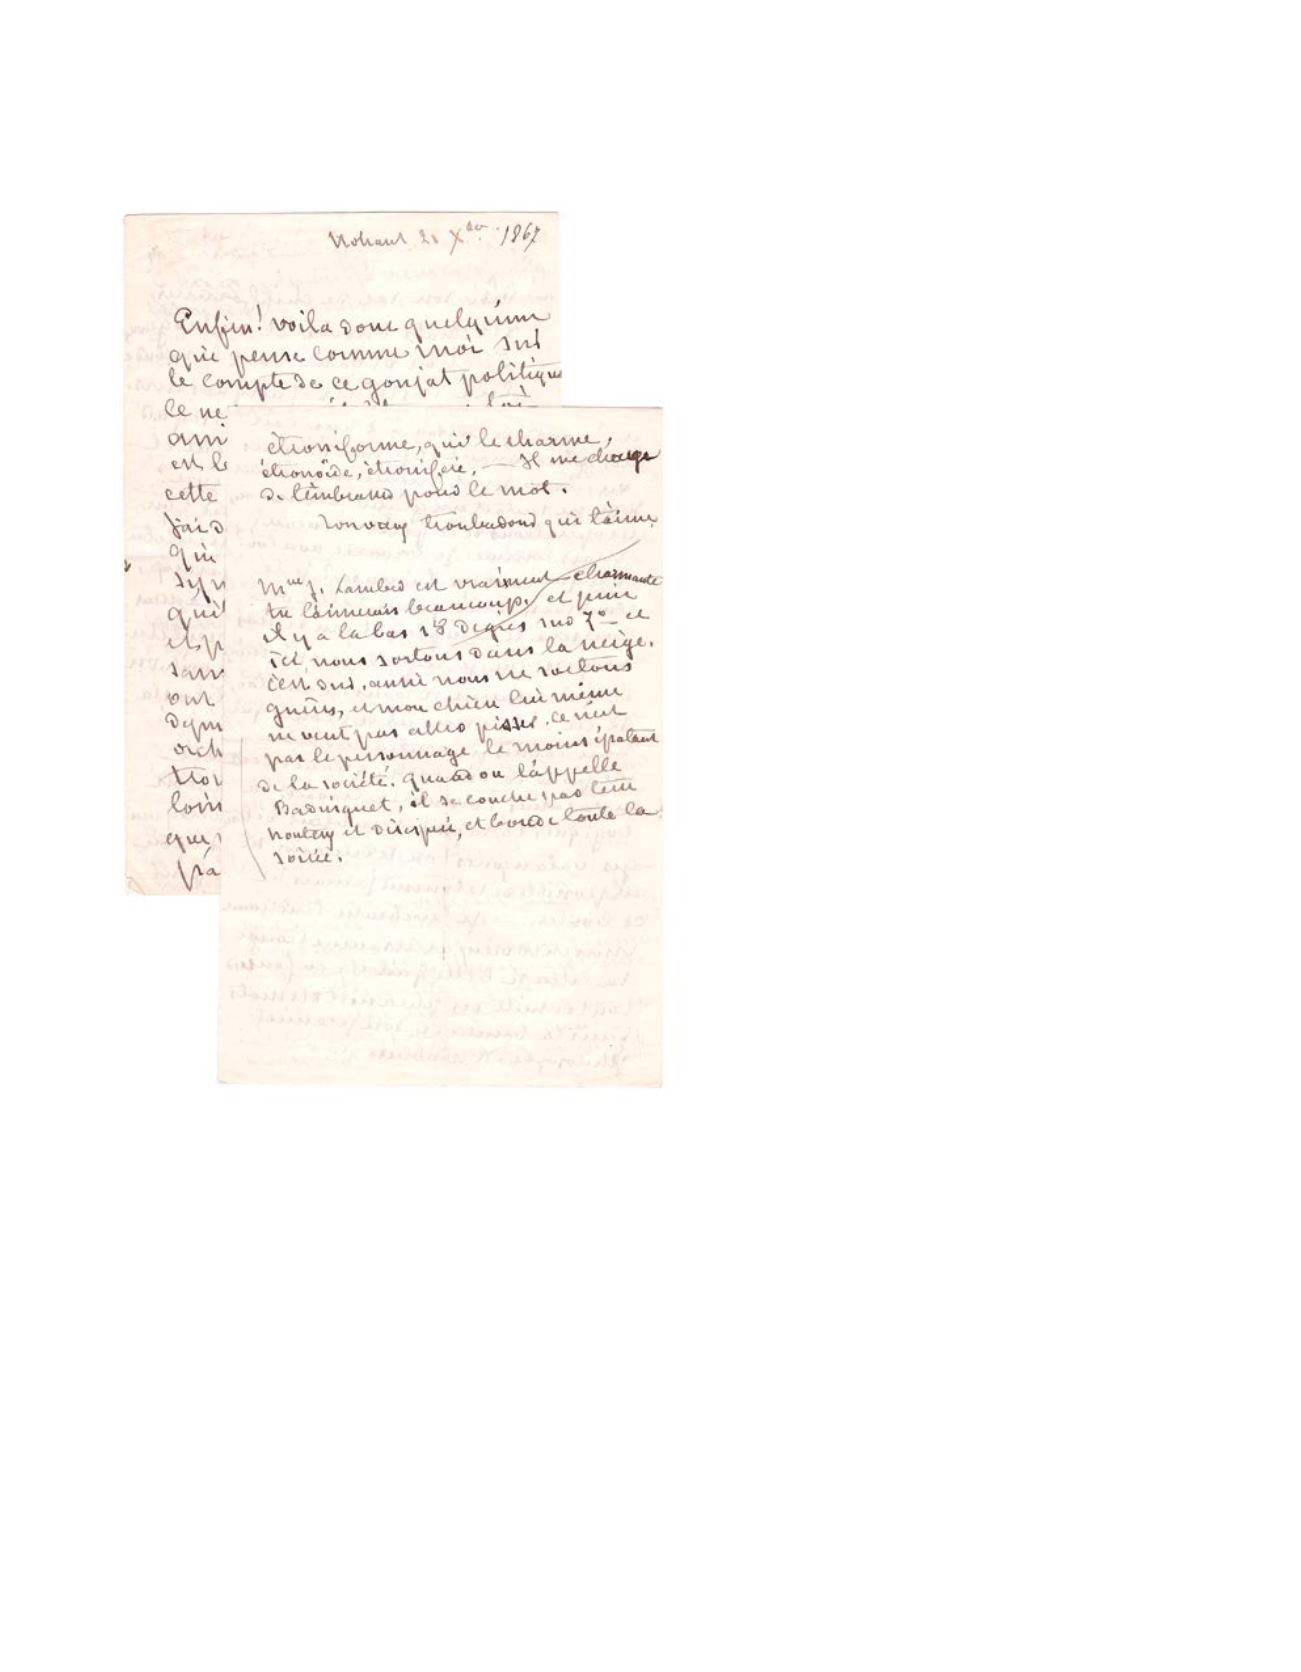 Nohant 21 Xbre 1867
Enfin! voila donc quelqu'un
qui pense comme moi sur
le compte de ce goujat politique
ce ne
ami
est le
cette
j'ai d
qui
syn
qui
et p
sans
ont
dym
och
trou
loin
que
pa
étroniforme, qui le charme,
étronoïde, étronifère, — Il me charge
de t'embrasser pour le mot.
ton vieux troubadour qui t'aime
Mme J. Lamber est vraiment charmante
tu l'aimerais beaucoup. et puis
il y a la bas 18 degrés sur 7o et
ici, nous sortons dans la neige.
c'est dur, aussi nous ne sortons
guères, et mon chien lui même
ne veut pas aller pisser. ce n'est
pas le personnage le moins épatant
de la société. quand on l'appelle
Badinguet, il se couche par terre
honteux et désespéré, et boude toute la
soirée.